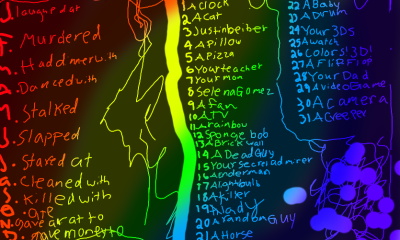 J. laughed at
F. Murdered
M. Had dinner with
A. Danced with
M. Stalked
J. Slapped
J. Stared at
A. Cleaned with
S. Killed with
O. ate
N. gave
D. gave money to
1 A clock
2 A cat
3 Justin beiber
4 A Pillow
5 A Pizza
6 Your teacher
7 Your mom
8 Selena Gomez
9 A fan
10 A TV
11 A rainbow
12 Sponge bob
13 A Brick wall
14 A Dead Guy
15 Your secret admirer
16 Aenderman
17 A lightbulb
18 A killer
19 A lady
20 A random GUY
21 A Horse
22 A Baby
23 A Drum
24 Your 3Ds
25 A watch
26 Colors! 3D!
27 A FlipFlop
28 Your Dad
29 A video Game
30 A Camera
31 A Creeper